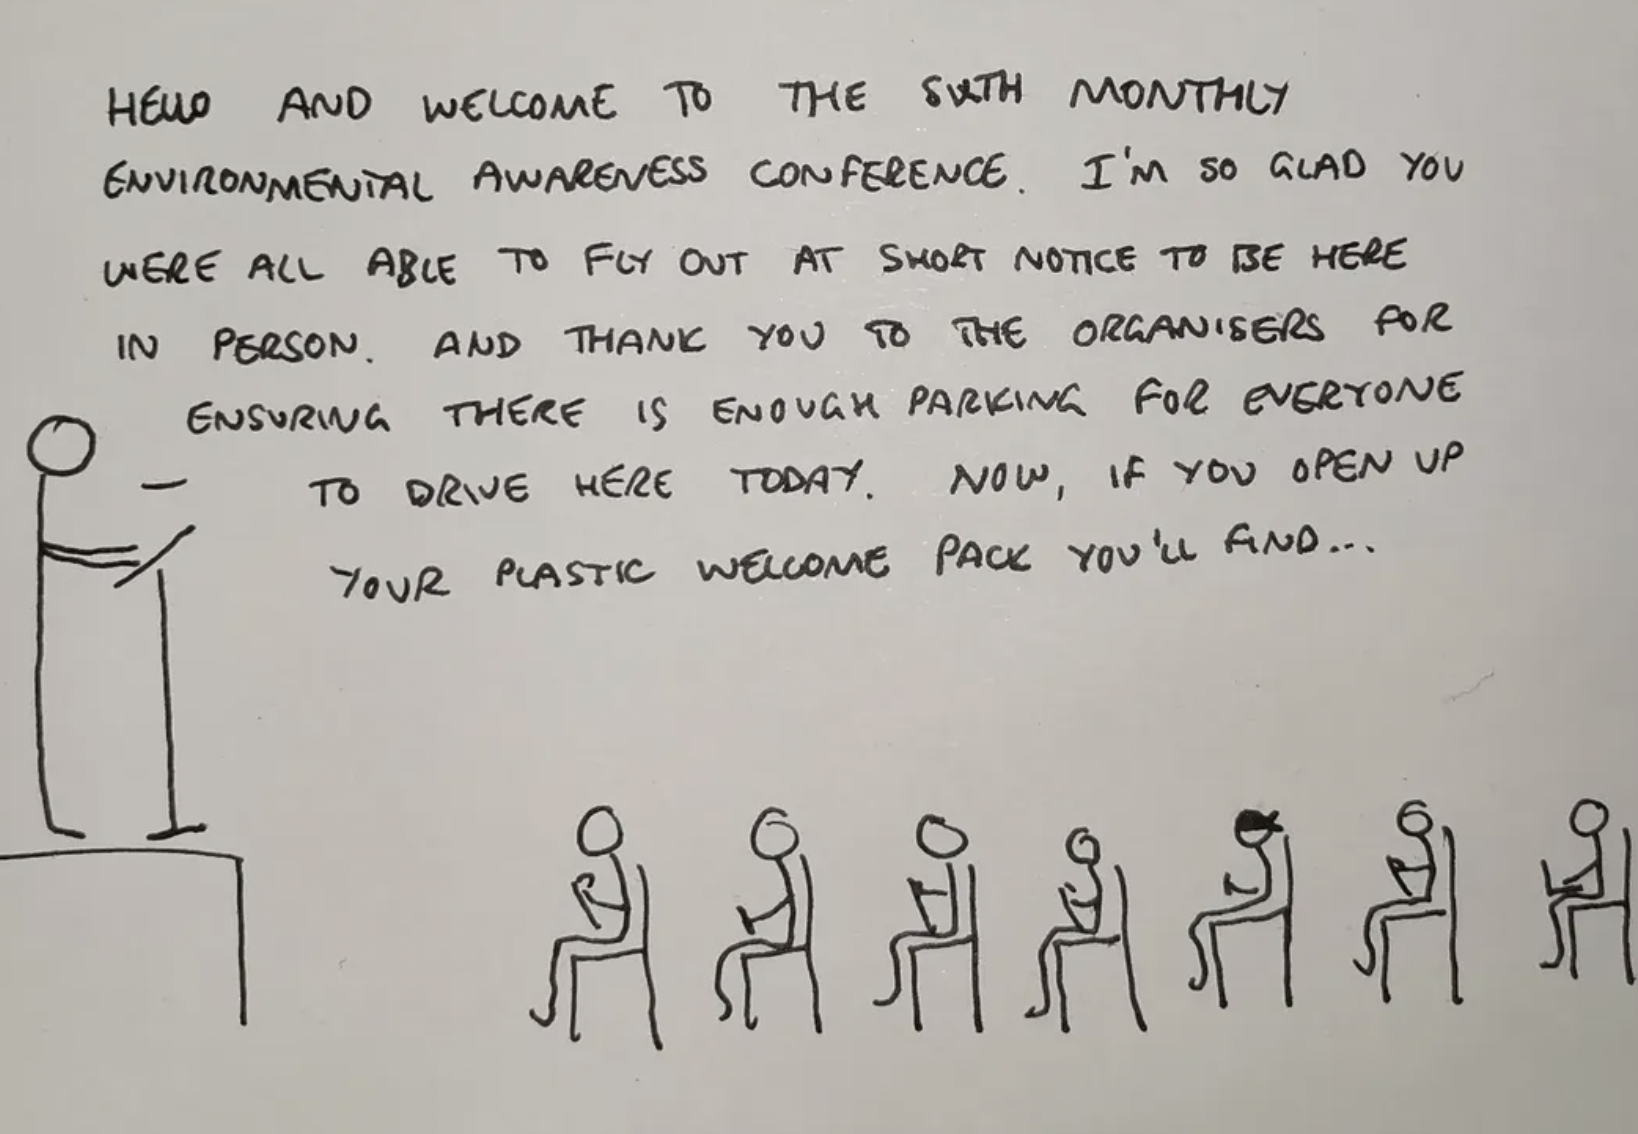 HELLO AND WELCOME TO THE SIXTH MONTHLY
ENVIRONMENTAL AWARENESS CONFERENCE. I'M SO GLAD YOU
WERE ALL ABLE TO FLY OUT AT SHORT NOTICE TO BE HERE
IN PERSON. AND THANK YOU TO THE ORGANISERS FOR
ENSURING THERE IS ENOUGH PARKING FOR EVERYONE
TO DRIVE HERE TODAY. NOW, IF YOU OPEN UP
YOUR PLASTIC WELCOME PACK YOU'LL FIND...